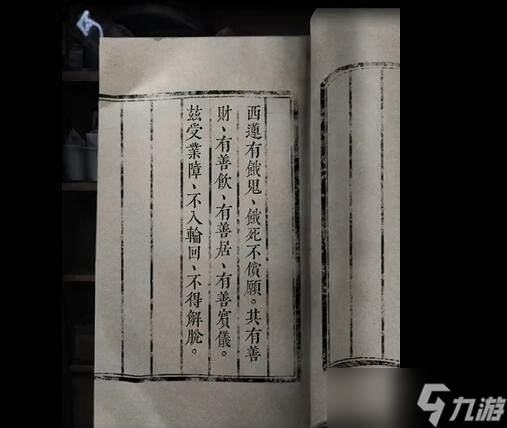 西蓮有餓鬼、餓死不償願。其有善
財、有善飲、有善居、有善賓儀。
玆受業障、不入輪回、不得解脫。
九游